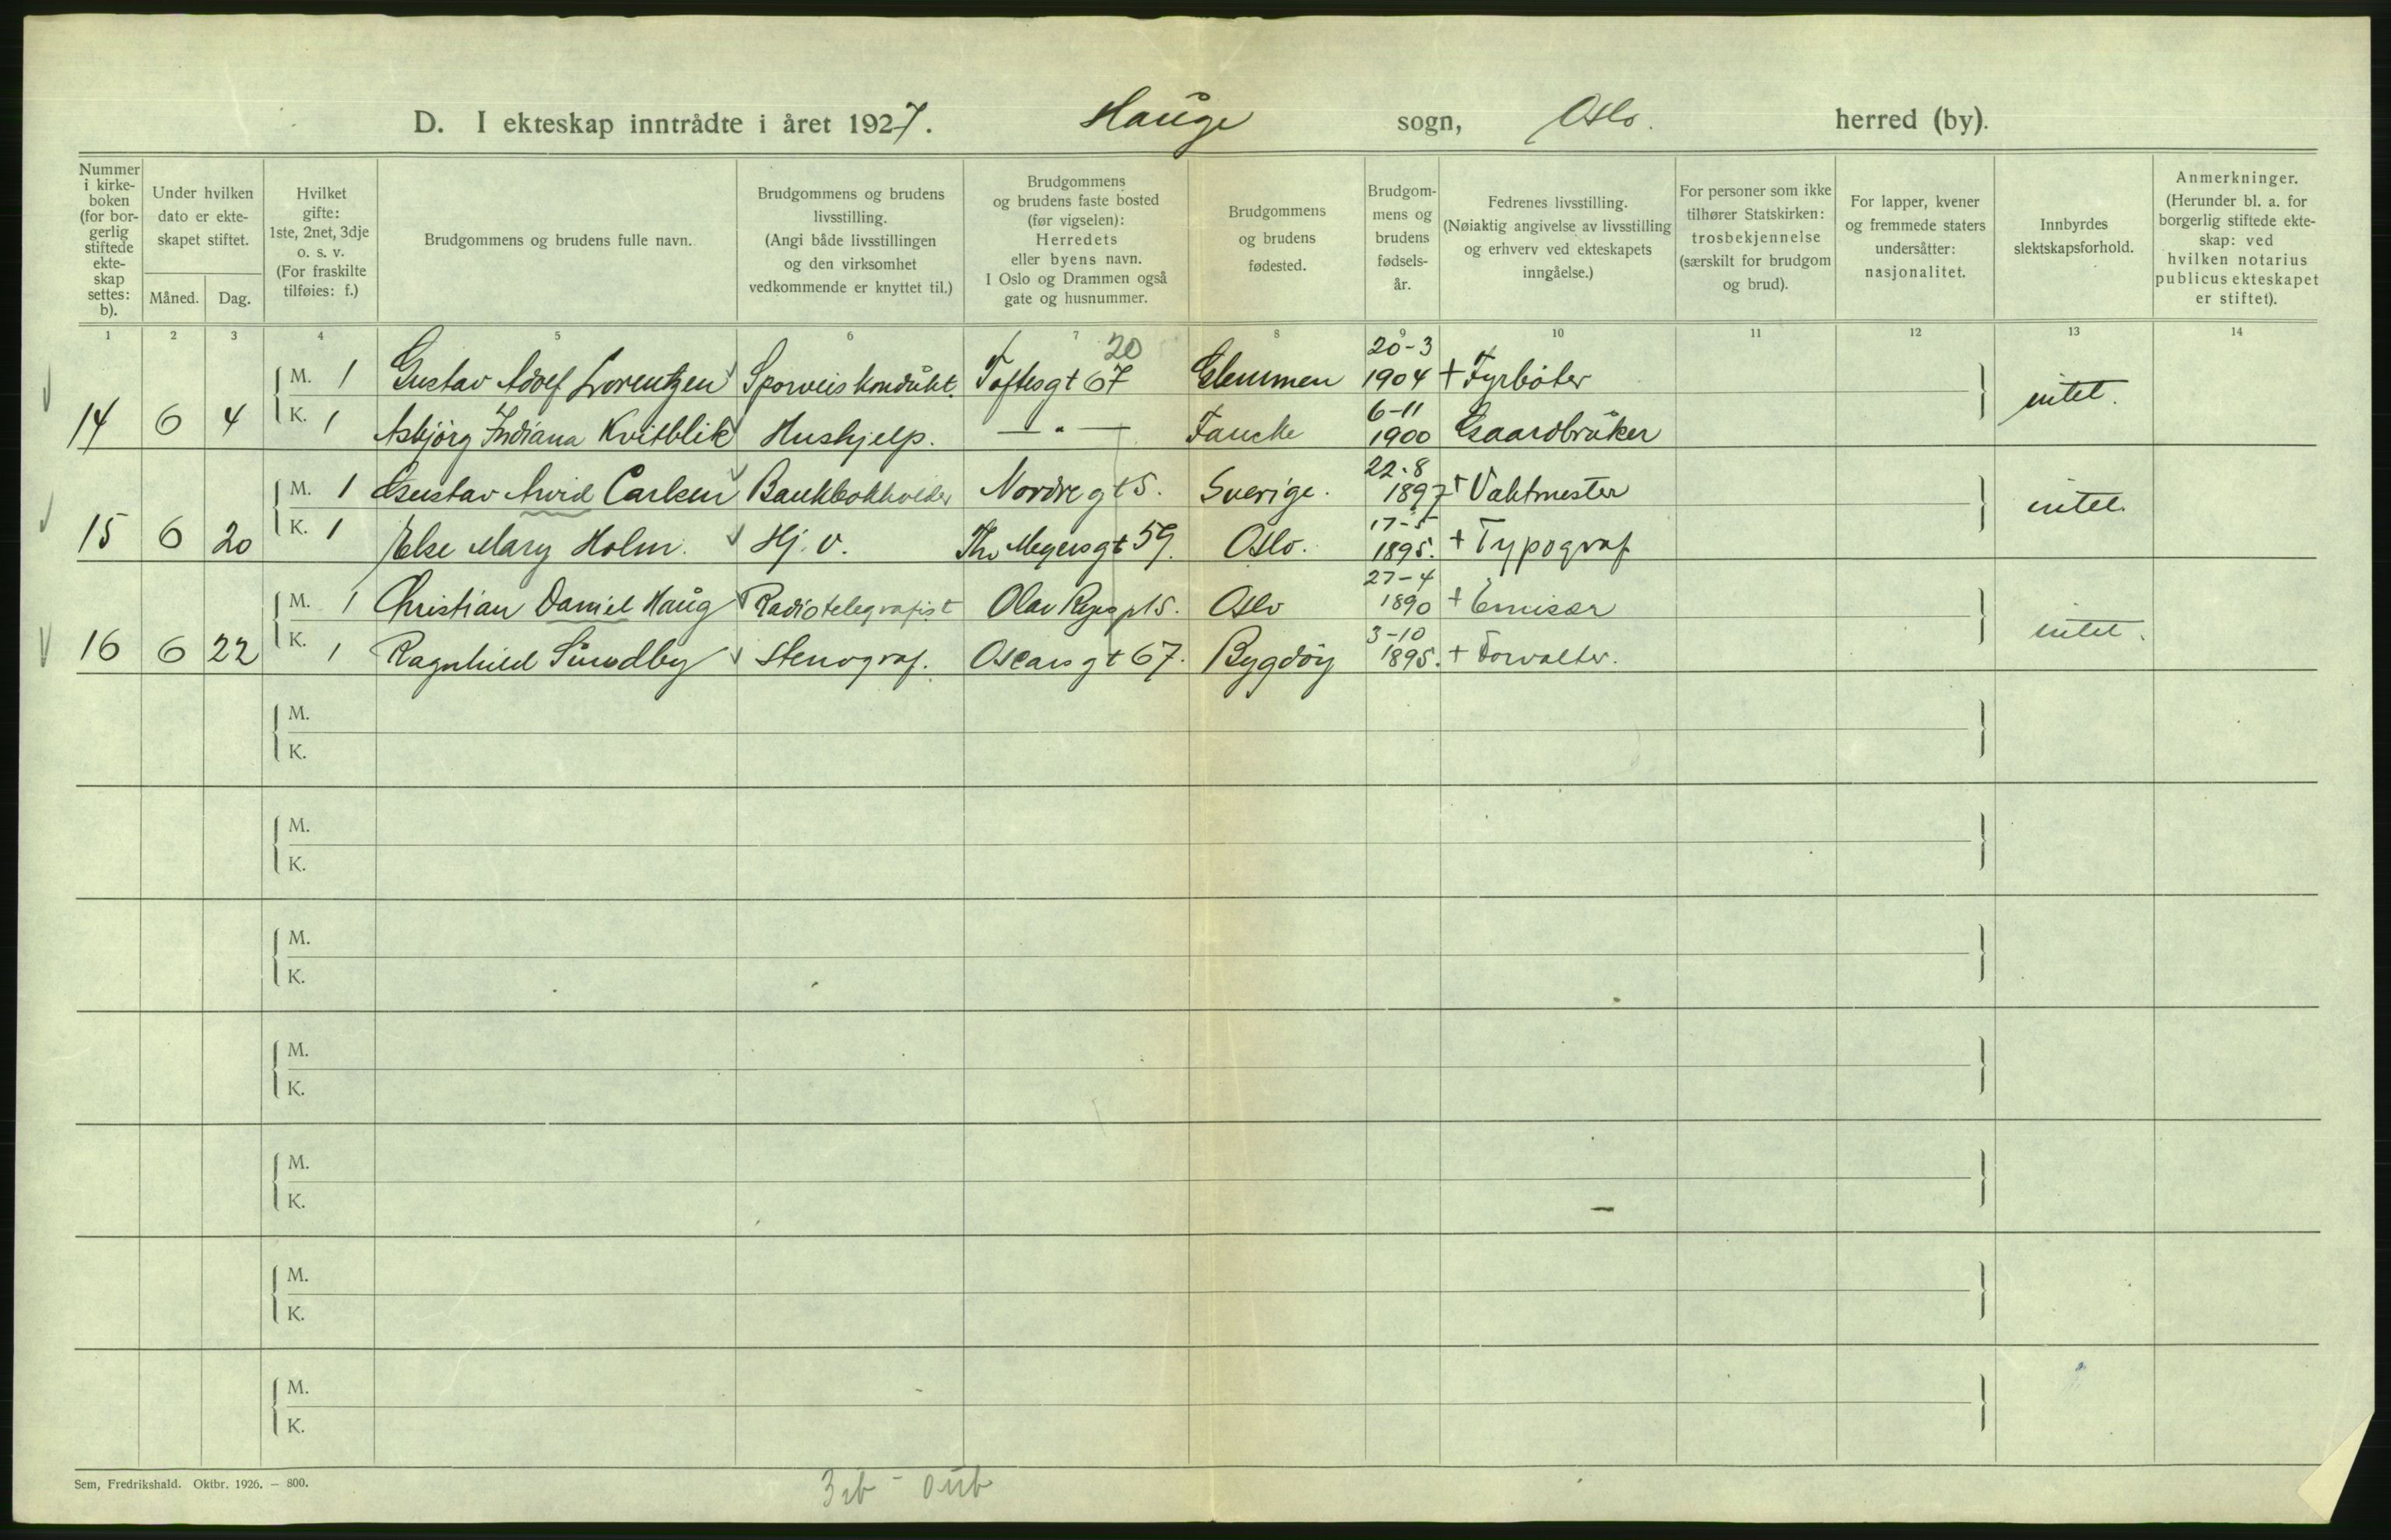 D. I ekteskap inntrådte i året 1927. Hauge sogn, Oslo. herred (by).
Nummer i kirke-boken (for bor-gerlig stiftede ekte-skap settes: b).
Under hvilken dato er ekte-skapet stiftet.
Måned. Dag.
Hvilket gifte: 1ste, 2net, 3dje o. s. v. (For fraskilte tilføies: f.)
Brudgommens og brudens fulle navn.
Brudgommens og brudens livsstilling. (Angi både livsstillingen og den virksomhet vedkommende er knyttet til.)
Brudgommens og brudens faste bosted (før vigselen): Herredets eller byens navn. I Oslo og Drammen også gate og husnummer.
Brudgommens og brudens fødested.
Brudgom-mens og brudens fødsels-år.
Fedrenes livsstilling. (Nøiaktig angivelse av livsstilling og erhverv ved ekteskapets inngåelse.)
For personer som ikke tilhører Statskirken: trosbekjennelse (særskilt for brudgom og brud).
For lapper, kvener og fremmede staters undersåtter: nasjonalitet.
Innbyrdes slektskapsforhold.
Anmerkninger. (Herunder bl. a. for borgerlig stiftede ekte-skap: ved hvilken notarius publicus ekteskapet er stiftet).
1 2 3 4 5 6 7 8 9 10 11 12 13 14
20 20-3
M. 1 Gustav Adolf Lorentzen Sporveiskondükt. Toftesgt 67 Glemmen 1904 + Fyrböter
intet.
6-11
14 6 4 K. 1 Asbjörg Indiana Kvitblik Hushjelp. — " — Fauske 1900 Gaardbrüker
22-8
M. 1 Gustav Arvid Carlsen Bankbokholder Nordregt 5. Sverige. 1897 + Vaktmester
intet.
17-5
15 6 20 K. 1 Else Mary Holm. Hj. v. Thv Meyersgt 59. Oslo. 1895. + Typograf
27-4
M. 1 Christian Daniel Haug Radiotelegrafist Olav Ryes pl 5. Oslo 1890 + Emisær
intet.
3-10
16 6 22 K. 1 Ragnhild Sundby Stenograf. Oscarsgt 67. Bygdöy 1895. + Forvalter.
M.
K.
M.
K.
M.
K.
M.
K.
M.
K.
M.
K.
M.
K.
Sem, Fredrikshald. Oktbr. 1926. — 800.